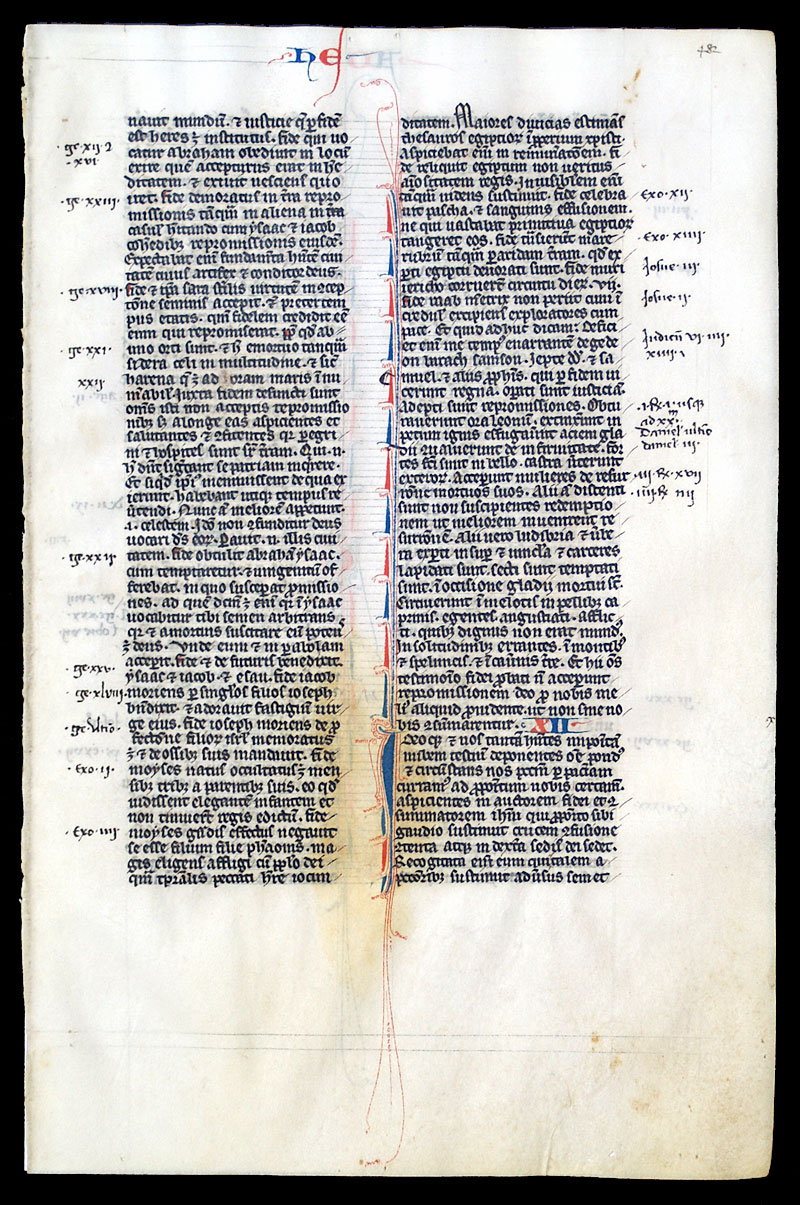 he
482
nauit mundū. & iusticie q̄ p̄ fidē
est heres ꝫ institutus. fide qui uo
catur abraham obediuit in locū
exire quē accepturus erat in he
ditatem. & exiuit nesciens quo
iret. fide demoratus in tr̄a repro
missionis tāq̄m in aliena in tr̄a
casul' h̄itando cum ysaac & iacob
cohedibꝫ repromissionis eiusdē.
Expectabat enī fundam̄ta hn̄tē ciui
tatē cuius artifex & conditor deus.
fide & ip̄a sara sterilis uirtutē in ɔcep
tōne seminis accepit. & preter tem
pus etatis. qm̄ fidelem credidit eē
eum qui repromiserat. pp̄ qd' ab
uno orti sunt. & h̄ emortuo tanquā
sydera celi in multitudine. & sic̄
harena q̄ ꝫ ad oram maris īnu
mabil'. Iuxta fidem defuncti sunt
om̄s isti non acceptis repromissio
nibꝫ sꝫ alonge eas aspicientes et
salutantes & ɔfitentes qr̄ pegri
ni & hospites sunt sr̄ tr̄am. Qui .n.
h̄ dn̄t significant se patriam inqrere.
Et siqd' ip̄i' meminissent de qua ex
ierunt. habebant utiqꝫ tempus re
ūtendi. Nunc ā meliorē appetunt.
.i. celestem. Iō non ɔfunditur deus
uocari d̄s eorꝫ. Pauit .n. illis ciui
tatem. fide obtulit abrahā ysaac.
cum temptaretur. & unigenitū of
ferebat. in quo susceperat p̄missio
nes. ad quē dictū ꝫ enī qr̄ ī ysaac
uocabitur tibi semen arbitrans
qr̄ & a mortuis suscitare eū potens
ꝫ deus. Unde eum & in pabolam
accepit. fide & de futuris benedixit
ysaac & iacob & esau. fide iacob
moriens p̄ singlos filios ioseph
bn̄dixit. & adorauit fastigiū uir
ge eius. fide ioseph moriens de p̄
fectōne filiorꝫ isrl' memoratus
ꝫ & de ossibꝫ suis mandauit. fide
moyses natus occultatus ꝫ men
sibꝫ tribꝫ a parentibꝫ suis. eo qd'
uidissent elegantē infantem et
non timuert̄ regis edictū. fide
moyses g̃dis effectus negauit
se esse filium filie pharaonis. ma
gis eligens affligi cū pplo dei
qm̄ tp̄ralis peccati h̄re iocun
ditatem. Maiores diuicias estimās
thesauros egiptiorꝫ īpperium xpisti.
aspiciebat enī in remunatōem. fi
de reliquit egiptum non ueritus
aīositatem regis. Inuisiblem enī
tāq̄m uidens sustinuit. fide celebra
uit pascha. & sanguinis effusionem.
ne qui uastabat primitiua egiptiorꝫ
tangeret eos. fide tn̄sierūt mare
rubrū tāq̄m p̄ aridam tr̄am. qd' ex
perti egiptii deuorati sunt. fide muri
iericho corruert̄ circuitu dierꝫ .vii.
fide raab meretrix non periit cum ī
credul' excipiens exploratores cum
pace. Et quid adhuc dicam: Defici
et enī me temp' enarrantē de gede
on barach samson. Iepte dd' & sa
muel. & aliis ppħis. qui p̄ fidem ui
cerunt regna. opati sunt iusticiā.
Adepti sunt repromissiones. Obtu
rauerunt ora leonū. extinxrunt im
petum ignis effugarūt aciem gla
dii ɔualuerunt de īfirmitate. for
tes fc̄i sunt in bello. castra ūterunt
exterorꝫ. Acceperunt mulieres de resur
rōne mortuos suos. Alii ā disten̄ti
sunt non suscipientes redemptio
nem ut meliorem inuenirent re
surōnē. Alii uero ludibria & ūbe
ra experti insup & uincla & carceres
lapidati sunt. secti sunt temptati
sunt. ī occisione gladii mortui st̄.
Circuierunt ī melotis in pellibꝫ ca
prinis. egentes. angustiati. afflic
ti. quibꝫ dignus non erat mund'.
In solitudinibꝫ errantes. ī montibꝫ
& speluncis. & ī cauernis tr̄e. Et hii ōs
testimōio fidei pbati nō acceperunt
repromissionem deo p̄ nobis me
li' aliquid prouidente. ut non sine no
bis ɔsūmarentur. XII
Ideo qꝫ & nos tantā hn̄tes impoītā
nubem testiū deponentes oē pond'
& circūstans nos pctm̄ p̄ paciam
curram' ad ppoitum nobis certamē.
aspicientes in auctorem fidei et ɔ
summatorem ihm̄ qui pposito sibi
gaudio sustinuit crucem ɔfusione
ɔtenta atqꝫ in dext̄a sedis dei sedet.
Recogitate eīst eum qui talem a
pctōribꝫ sustinuit adūsus semet
ge·xii·ɔ
xvi·
ge·xxiii·
ge·xviii·
ge·xxi·
xxii
ge·xxii
ge·xxv·
ge·xlviii·
ge·vltīo·
Exo·ii·
Exo·iiii
Exo·xii·
Exo·xiiii·
Josue·iii·
Josue·ii·
Judicū vi·iiii·
xiiii·
·i·Rꝫ·i·usqꝫ
ad xxi
Daniel ultīo
daniel iii·
·iii·Rꝫ·xvii
·iiii·Rꝫ iiii